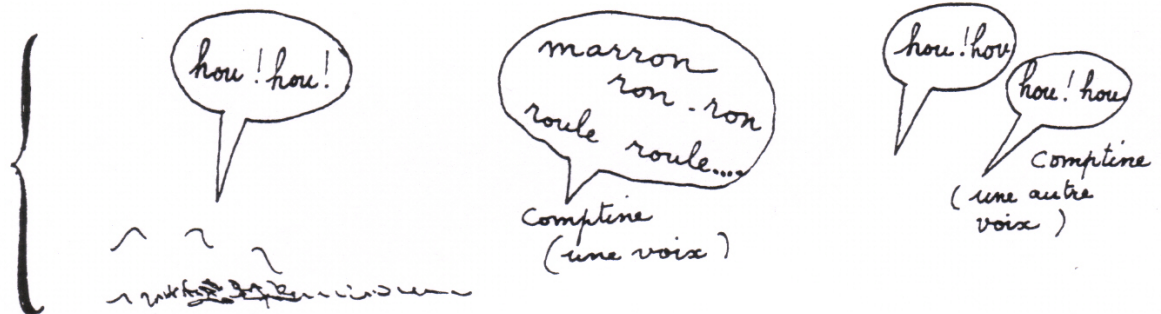 hou ! hou !
marron
ron - ron
roule roule....
comptine
(une voix)
hou ! hou
hou ! hou
comptine
(une autre
voix)